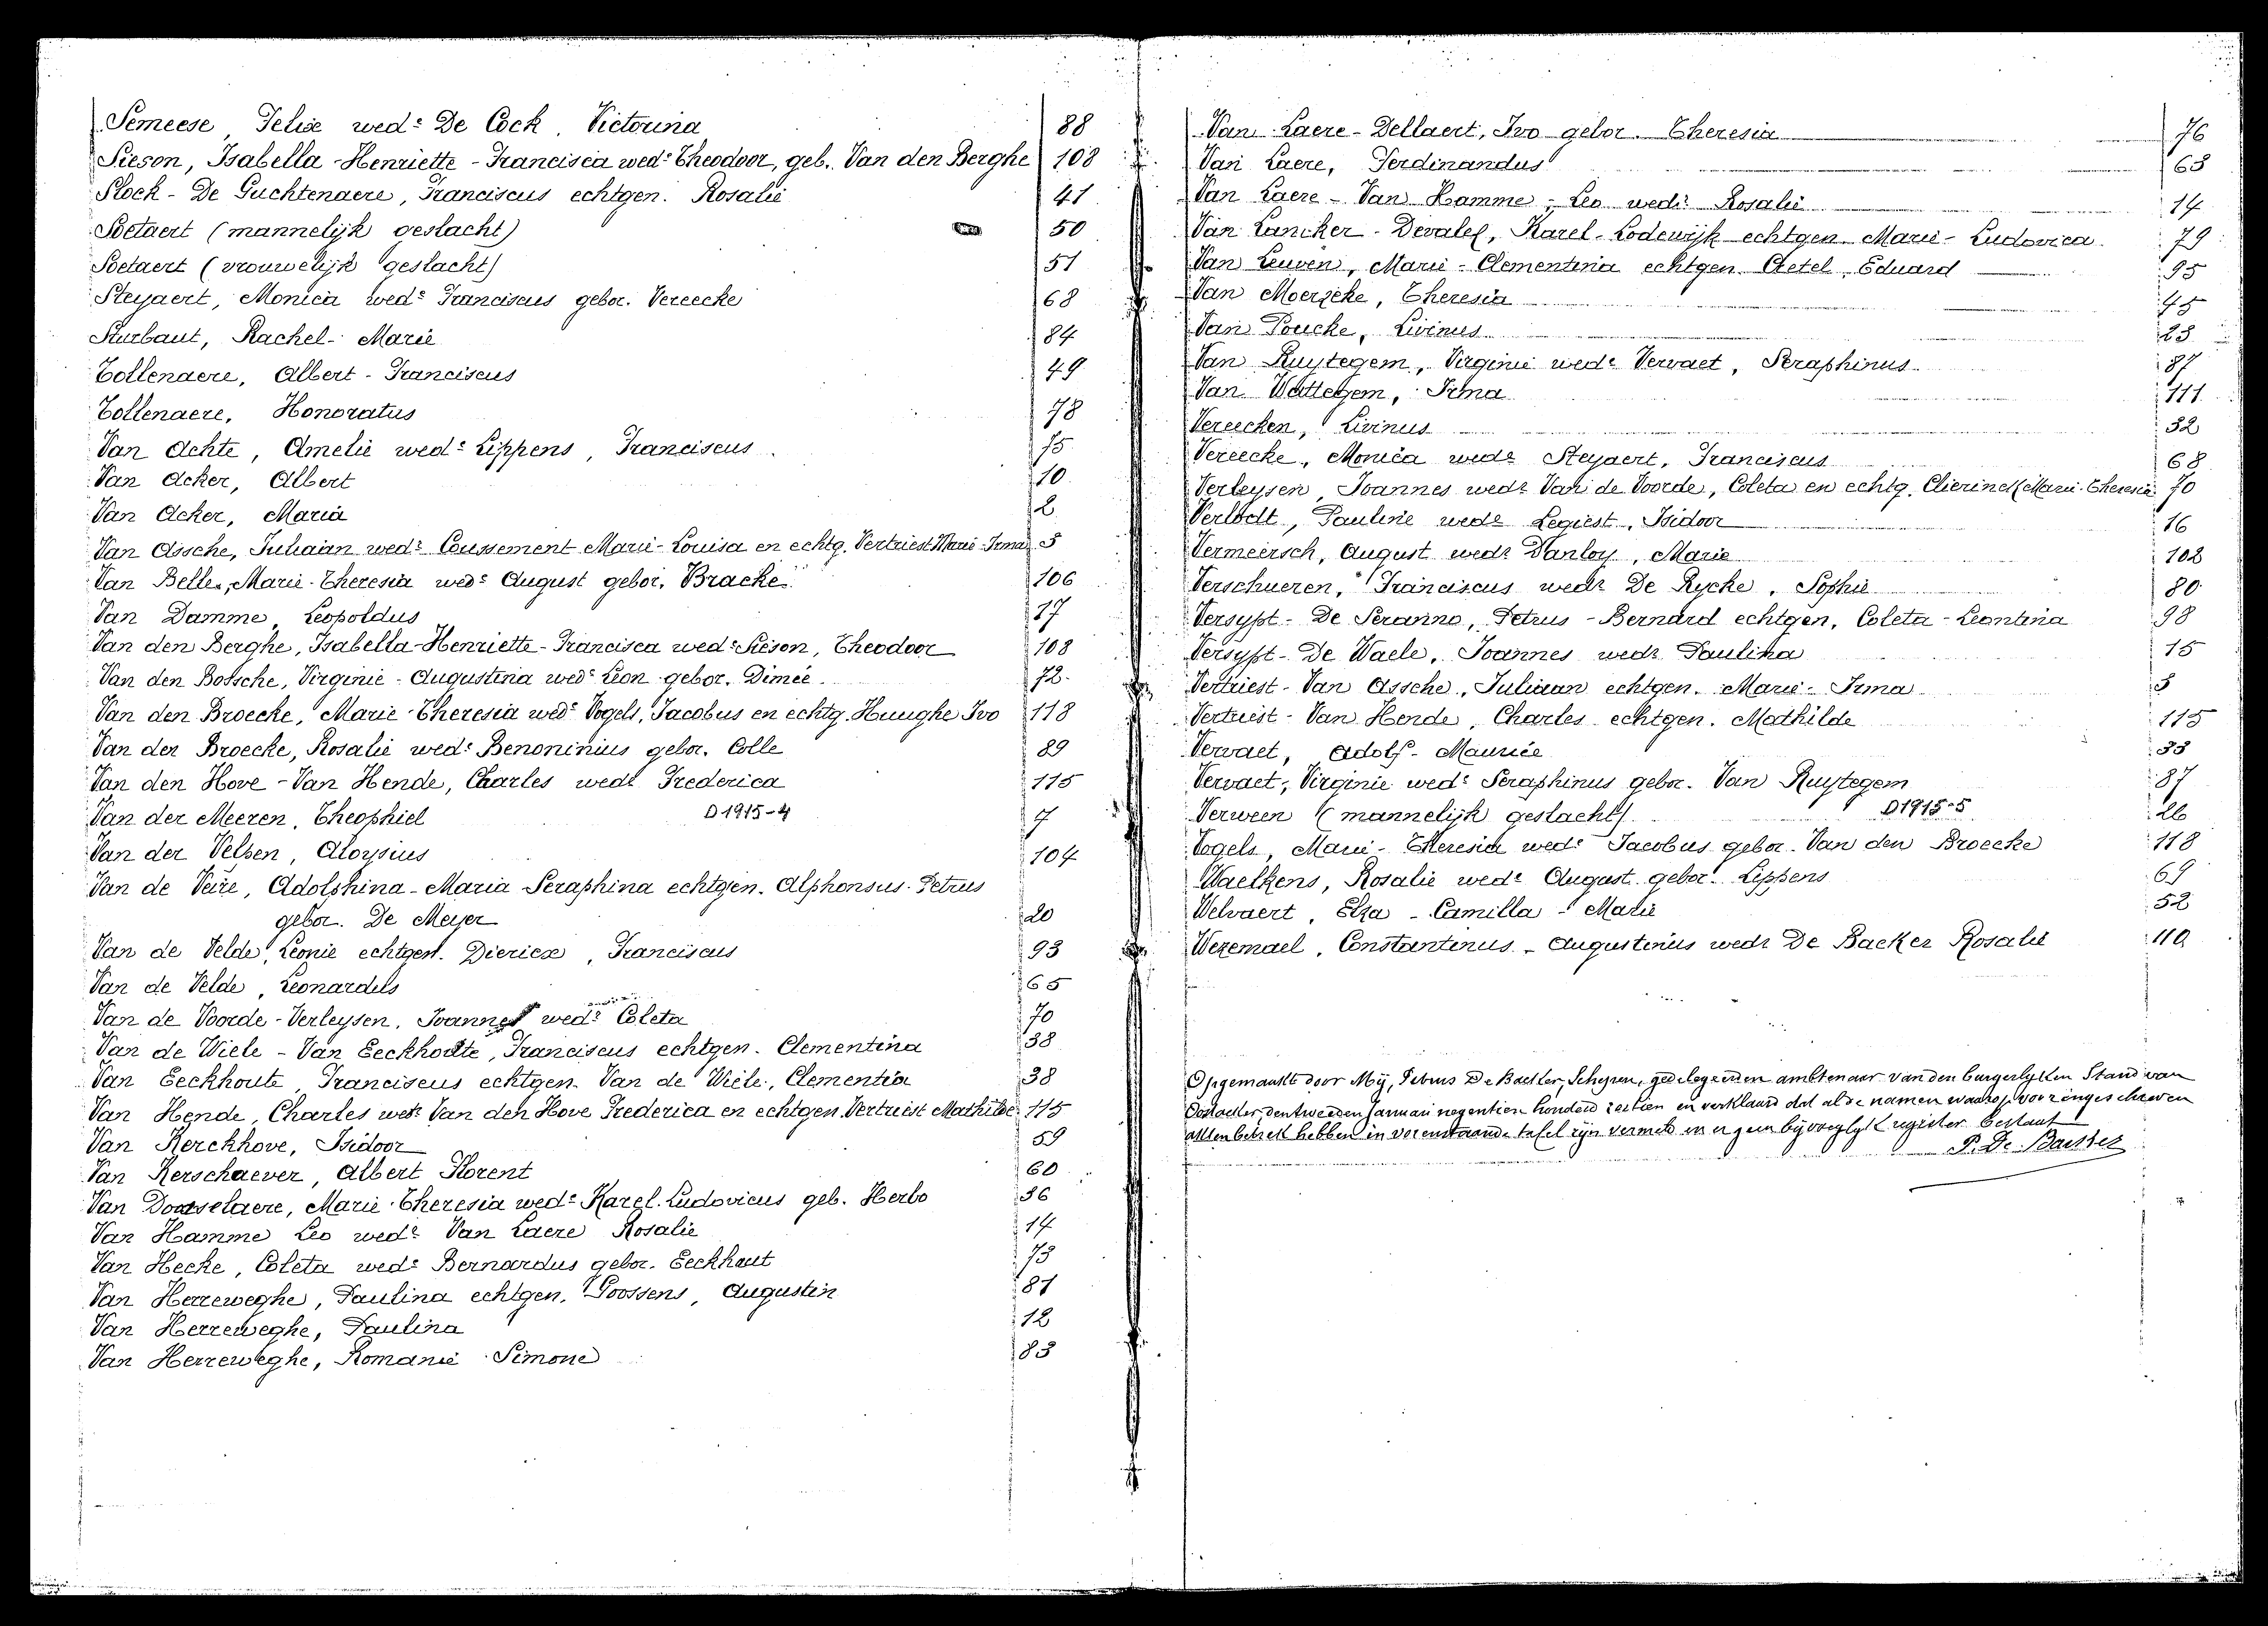 Semeese, Felix wed.e De Cock, Victorina 88
Sieson, Isabella-Henriette-Francisca wed.e Theodoor, geb. Van den Berghe 108
Slock-De Guchtenaere, Franciscus echtgen. Rosalie 41
Soetaert (mannelijk geslacht) 50
Soetaert (vrouwelijk geslacht) 51
Steyaert, Monica wed.e Franciscus gebor. Vereecke 68
Sturbaut, Rachel-Marie 84
Tollenaere, Albert-Franciscus 49
Tollenaere, Honoratus 78
Van Achte, Amelie wed.e Lippens, Franciscus 75
Van Acker, Albert 10
Van Acker, Maria 2
Van Assche, Juliaan wed.r Coussement Marie-Louisa en echtg. Vertriest Marie-Irma 3
Van Belle, Marie-Theresia wed.e August gebor. Bracke
106
Van Damme, Leopoldus 17
Van den Berghe, Isabella-Henriette-Francisca wed.e Sieson, Theodoor 108
Van den Bossche, Virginie-Augustina wed.e Leon gebor. Dimée 72
Van den Broecke, Marie-Theresia wed.e Vogels, Jacobus en echtg. Huughe Ivo 118
Van den Broecke, Rosalie wed.e Benoninius gebor. Colle 89
Van den Hove-Van Hende, Charles wed.r Frederica 115
Van der Meeren, Theophiel D1915-4 7
Van der Velsen, Aloysius 104
Van de Veire, Adolphina-Maria-Seraphina echtgen. Alphonsus-Petrus
gebor. De Meyer 20
Van de Velde, Leonie echtgen. Diericx, Franciscus 93
Van de Velde, Leonardus 65
Van de Voorde-Verleysen, Joannes wed.r Coleta 70
Van de Wiele-Van Eeckhoutte, Franciscus echtgen. Clementina 38
Van Eeckhoute, Franciscus echtgen. Van de Wiele, Clementia 38
Van Hende, Charles wed.r Van den Hove Frederica en echtgen. Vertriest Mathilde 115
Van Kerckhove, Isidoor 59
Van Kerschaever, Albert Florent 60
Van Doorselaere, Marie-Theresia wed.e Karel-Ludovicus geb. Herbo 36
Van Hamme Leo wed.r Van Laere Rosalie 14
Van Hecke, Coleta wed.e Bernardus gebor. Eeckhaut 73
Van Herreweghe, Paulina echtgen. Goossens, Augustin 81
Van Herreweghe, Paulina 12
Van Herreweghe, Romanie Simone 83
Van Laere-Dellaert, Ivo gebor. Theresia 76
Van Laere, Ferdinandus 63
Van Laere-Van Hamme, Leo wed.r Rosalie 14
Van Lancker-Devalez, Karel-Lodewijk echtgen. Marie-Ludovica 79
Van Leuven, Marie-Clementina echtgen. Eduard 95
Van Moerzeke, Theresia 45
Van Poucke, Livinus 23
Van Ruytegem, Virginie wed.e Vervaet, Seraphinus 87
Van Wattegem, Irma 111
Vereecken, Livinus 32
Vereecke, Monica wed.e Steyaert, Franciscus 68
Verleysen, Joannes wed.r Van de Voorde, Coleta en echtg. Clierinck Marie-Theresia 70
Verlodt, Pauline wed.e Legiest, Isidoor 16
Vermeirsch, August wed.r Danloy, Marie 102
Verschueren, Franciscus wed.r De Rycke, Sophie 80
Versypt-De Seranno, Petrus-Bernard echtgen. Coleta-Leontina 98
Versypt-De Waele, Joannes wed.r Paulina 15
Vertriest-Van Assche, Juliaan echtgen. Marie-Irma 3
Vertriest-Van Hende, Charles echtgen. Mathilde 115
Vervaet, Adolf-Maurice 33
Vervaet, Virginie wed.e Seraphinus gebor. Van Ruytegem 87
Verween (mannelijk geslacht) D1915-5 26
Vogels, Marie-Theresia wed.e Jacobus gebor. Van den Broecke 118
Waelkens, Rosalie wed.e August gebor. Lippens 69
Welvaert, Elza-Camilla-Marie 52
Wezemael, Constantinus-Augustinus wed.r De Backer Rosalie 110
Opgemaakt door Mij, Petrus De Backer, Schepen, gedelegeerden ambtenaar van den burgerlyken Stand van
Oostacker, den tweeden Januari negentien honderd zestien en verklaard dat al de namen waarop voor ingeschreven
akten betrek hebben in vorenstaande tafel zijn vermeld en er geen bijvoeglyk register bestaat
P. De Backer